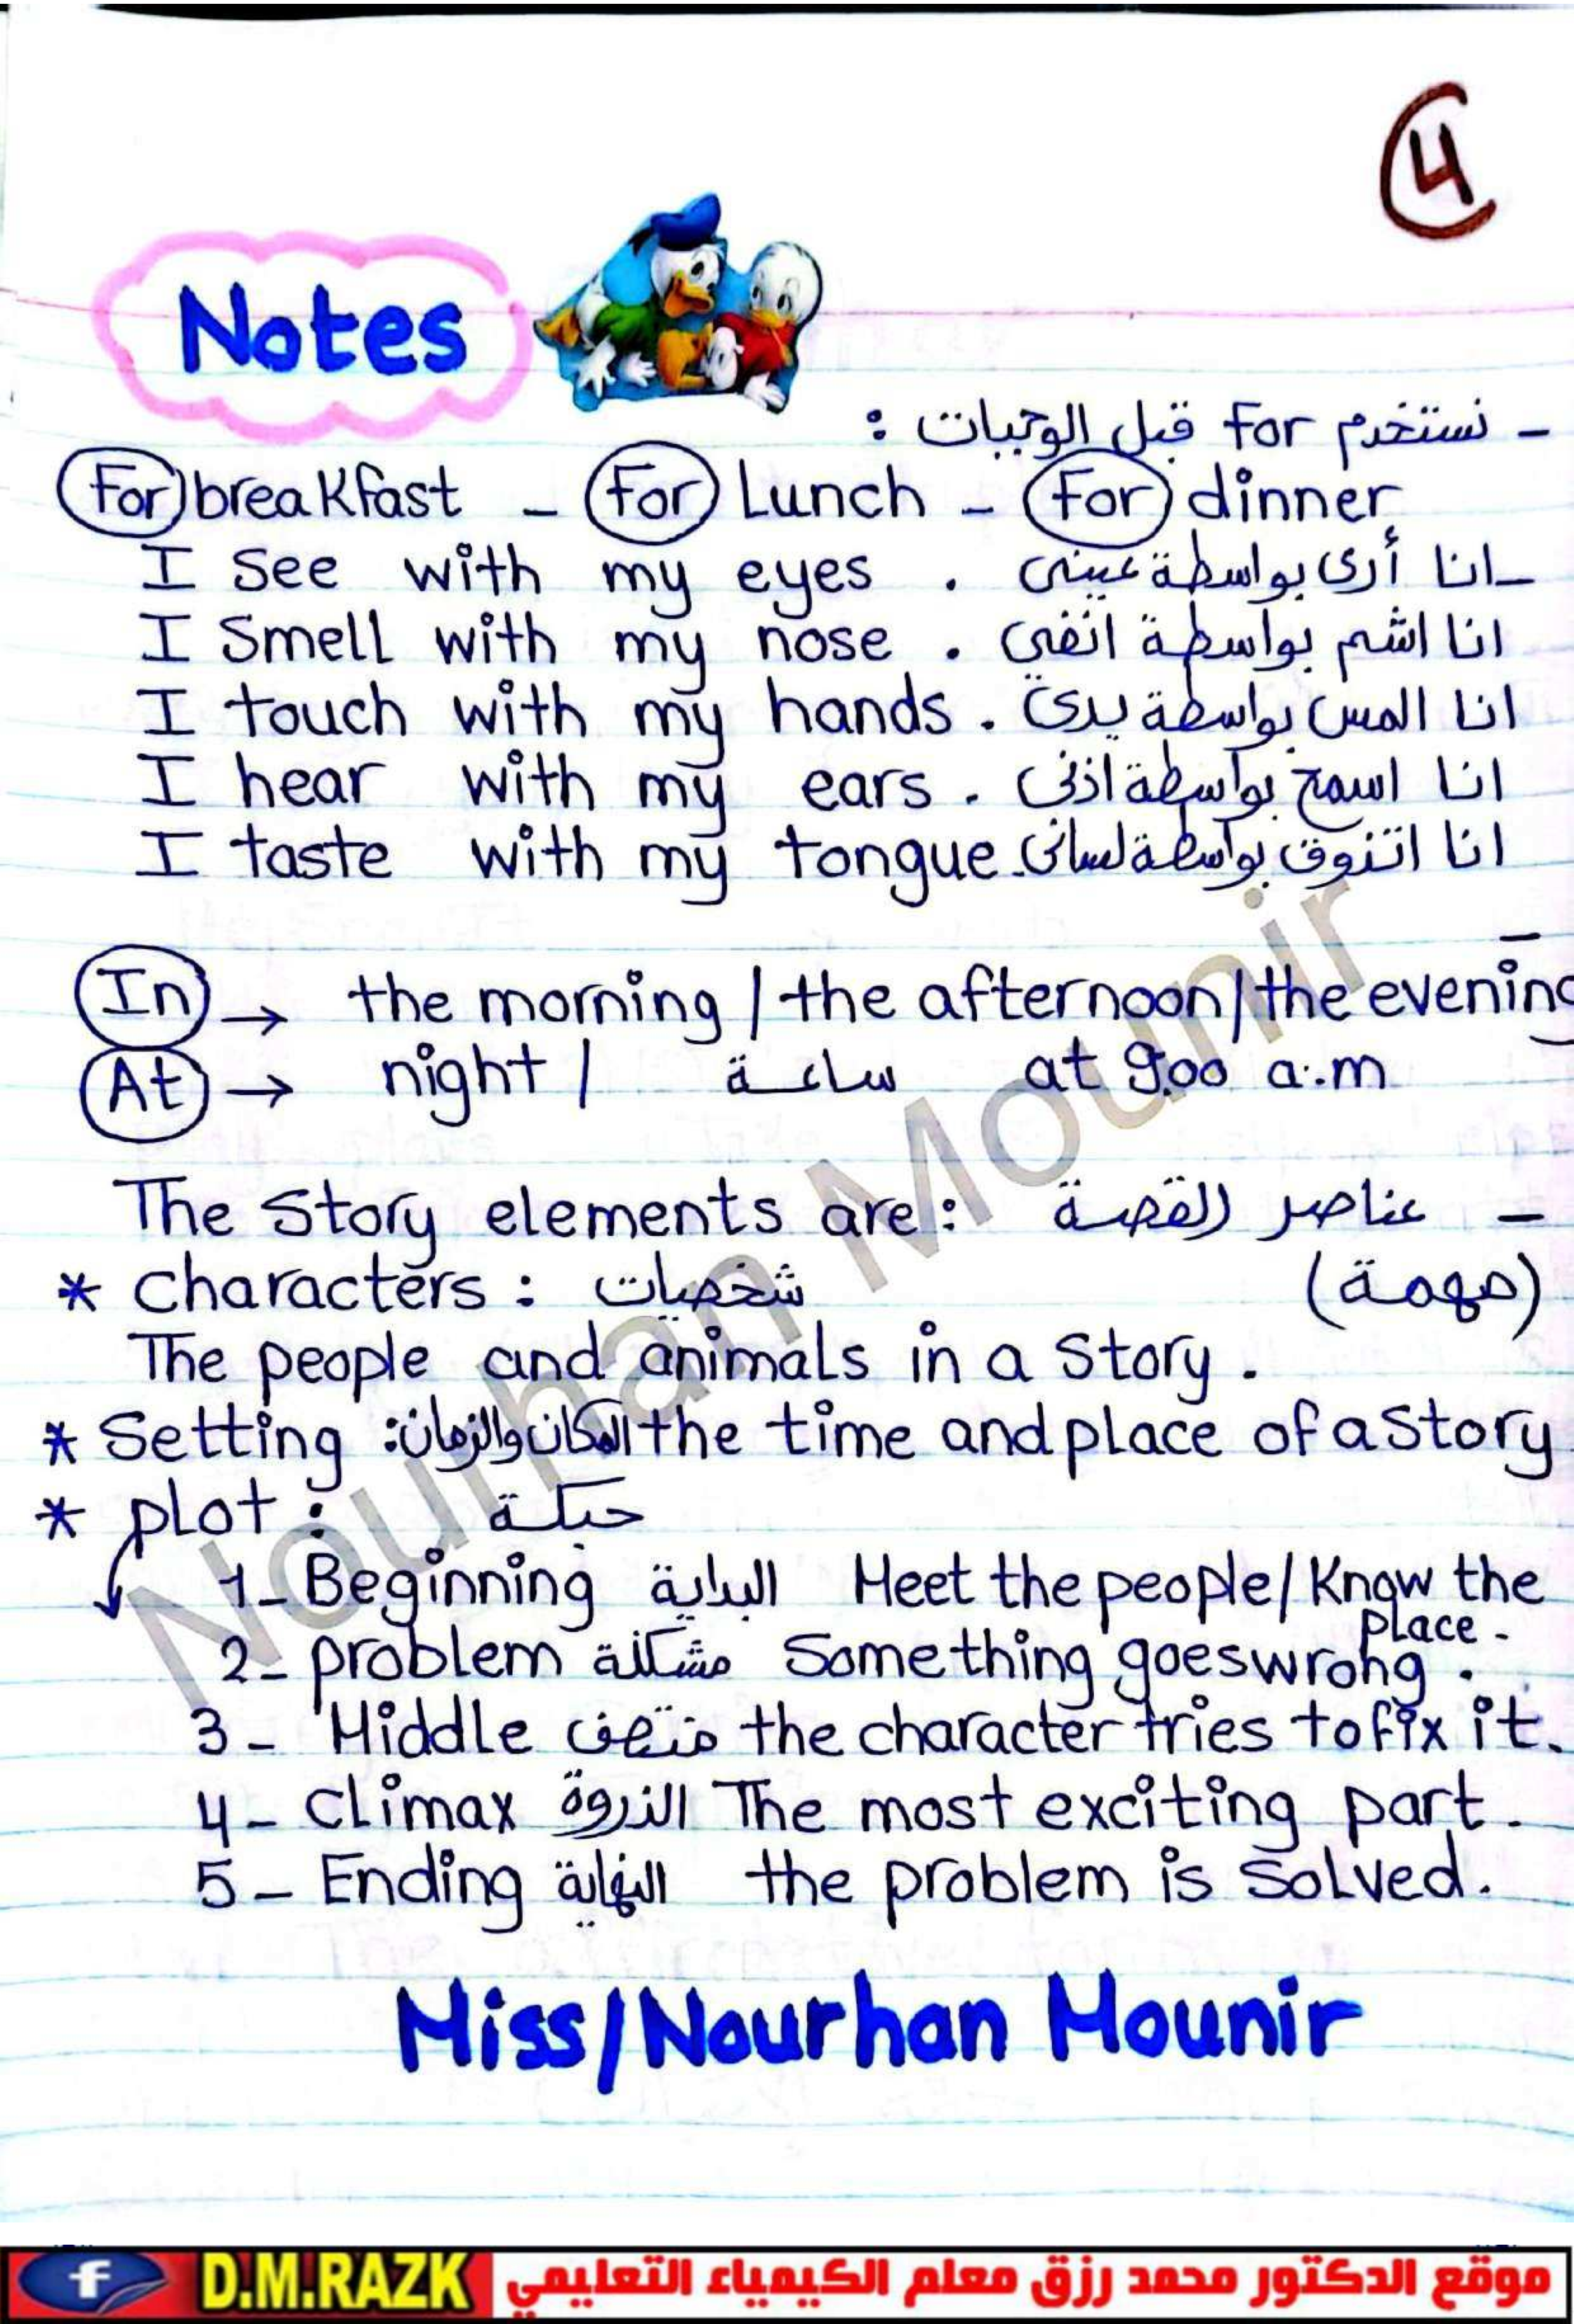 4
Notes
- نستخدم For قبل الوجبات :
For breakfast - For Lunch - For dinner
I see with my eyes . انا أرى بواسطة عينى -
I Smell with my nose . انا اشم بواسطة انفي
I touch with my hands . انا المس بواسطة يدي
I hear with my ears . انا اسمع بواسطة اذنى
I taste with my tongue . انا اتذوق بواسطة لسانى
In → the morning / the afternoon / the evening
At → night / ساعة at 9:00 a.m
The Story elements are : عناصر القصة -
* Characters : شخصيات (مهمة)
The people and animals in a Story .
* Setting : المكان والزمان the time and place of a Story
* plot : حبكة
1- Beginning البداية Meet the people / Know the place .
2- problem مشكلة Something goes wrong .
3- Middle منتصف the character tries to fix it .
4- Climax الذروة The most exciting part .
5- Ending النهاية the problem is Solved .
Miss/Nourhan Mounir
Nourhan Mounir
f D.M.RAZK موقع الدكتور محمد رزق معلم الكيمياء التعليمي